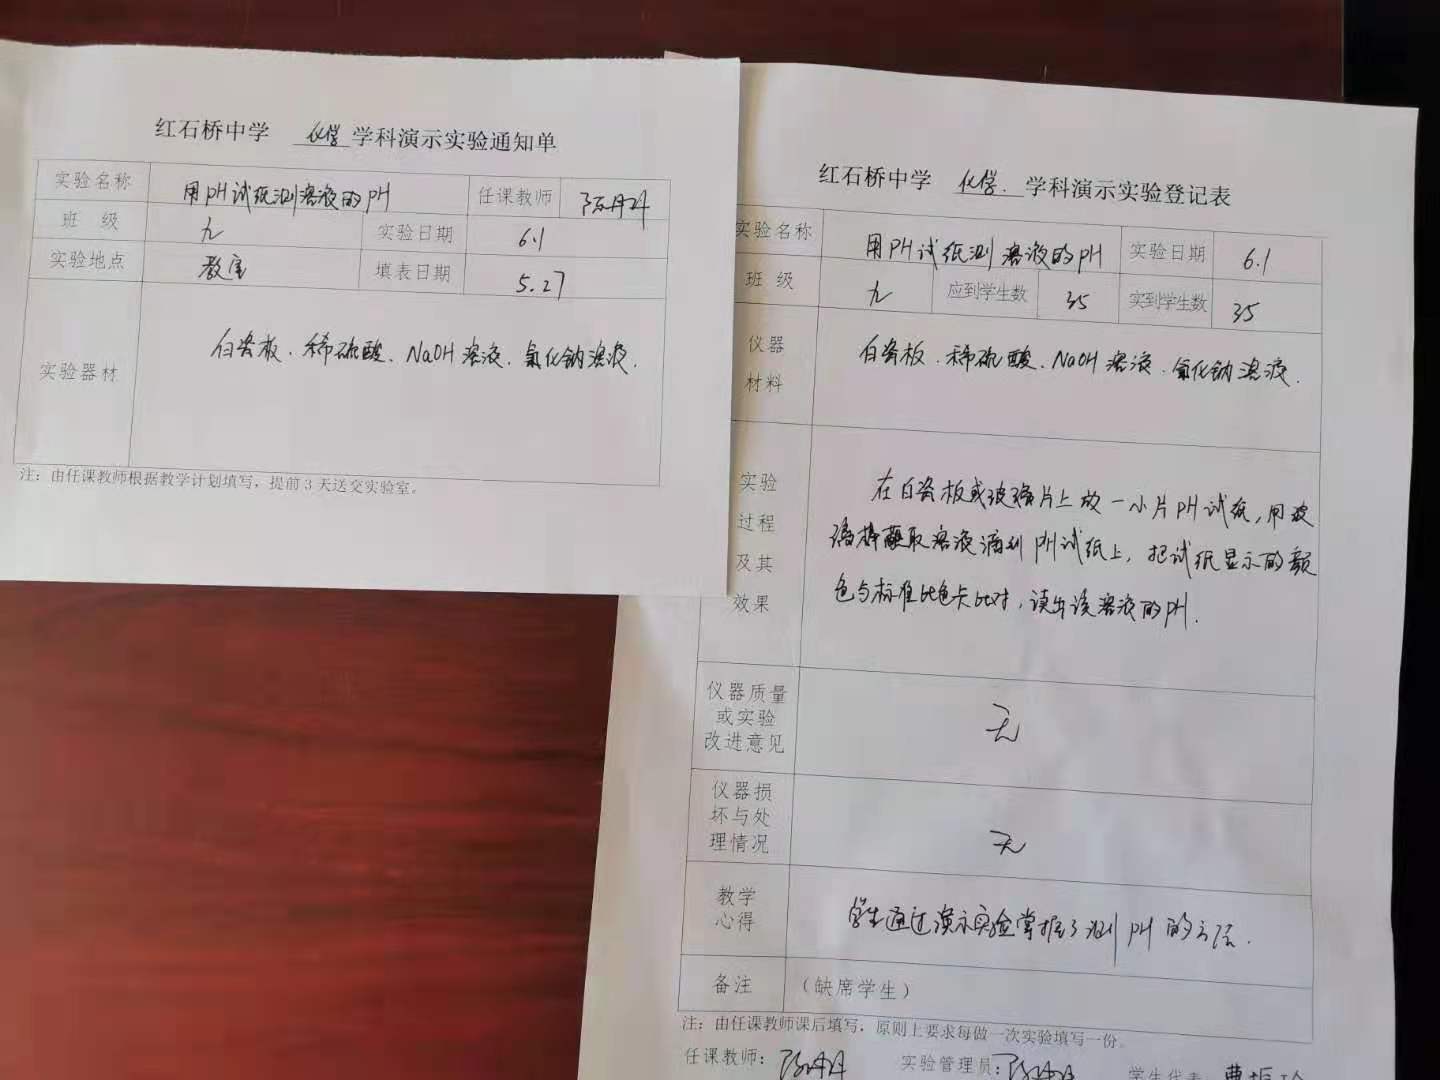 红石桥中学 化学 学科演示实验通知单
实验名称 用pH试纸测溶液的pH 任课教师 陈丹丹
班 级 九 实验日期 6.1
实验地点 教室 填表日期 5.27
实验器材 白瓷板、稀硫酸、NaOH溶液、氯化钠溶液.
注：由任课教师根据教学计划填写，提前3天送交实验室。
红石桥中学 化学. 学科演示实验登记表
实验名称 用PH试纸测溶液的pH 实验日期 6.1
班 级 九 应到学生数 35 实到学生数 35
仪器
材料
白瓷板、稀硫酸、NaOH溶液、氯化钠溶液.
实验
过程
及其
效果
在白瓷板或玻璃片上放一小片pH试纸,用玻
璃棒蘸取溶液滴到pH试纸上,把试纸显示的颜
色与标准比色卡比对,读出该溶液的pH.
仪器质量
或实验
改进意见
无
仪器损
坏与处
理情况
无
教学
心得
学生通过演示实验掌握了测pH的方法.
备注 （缺席学生）
注：由任课教师课后填写，原则上要求每做一次实验填写一份。
任课教师：陈丹丹 实验管理员：陈丹丹 学生代表：曹